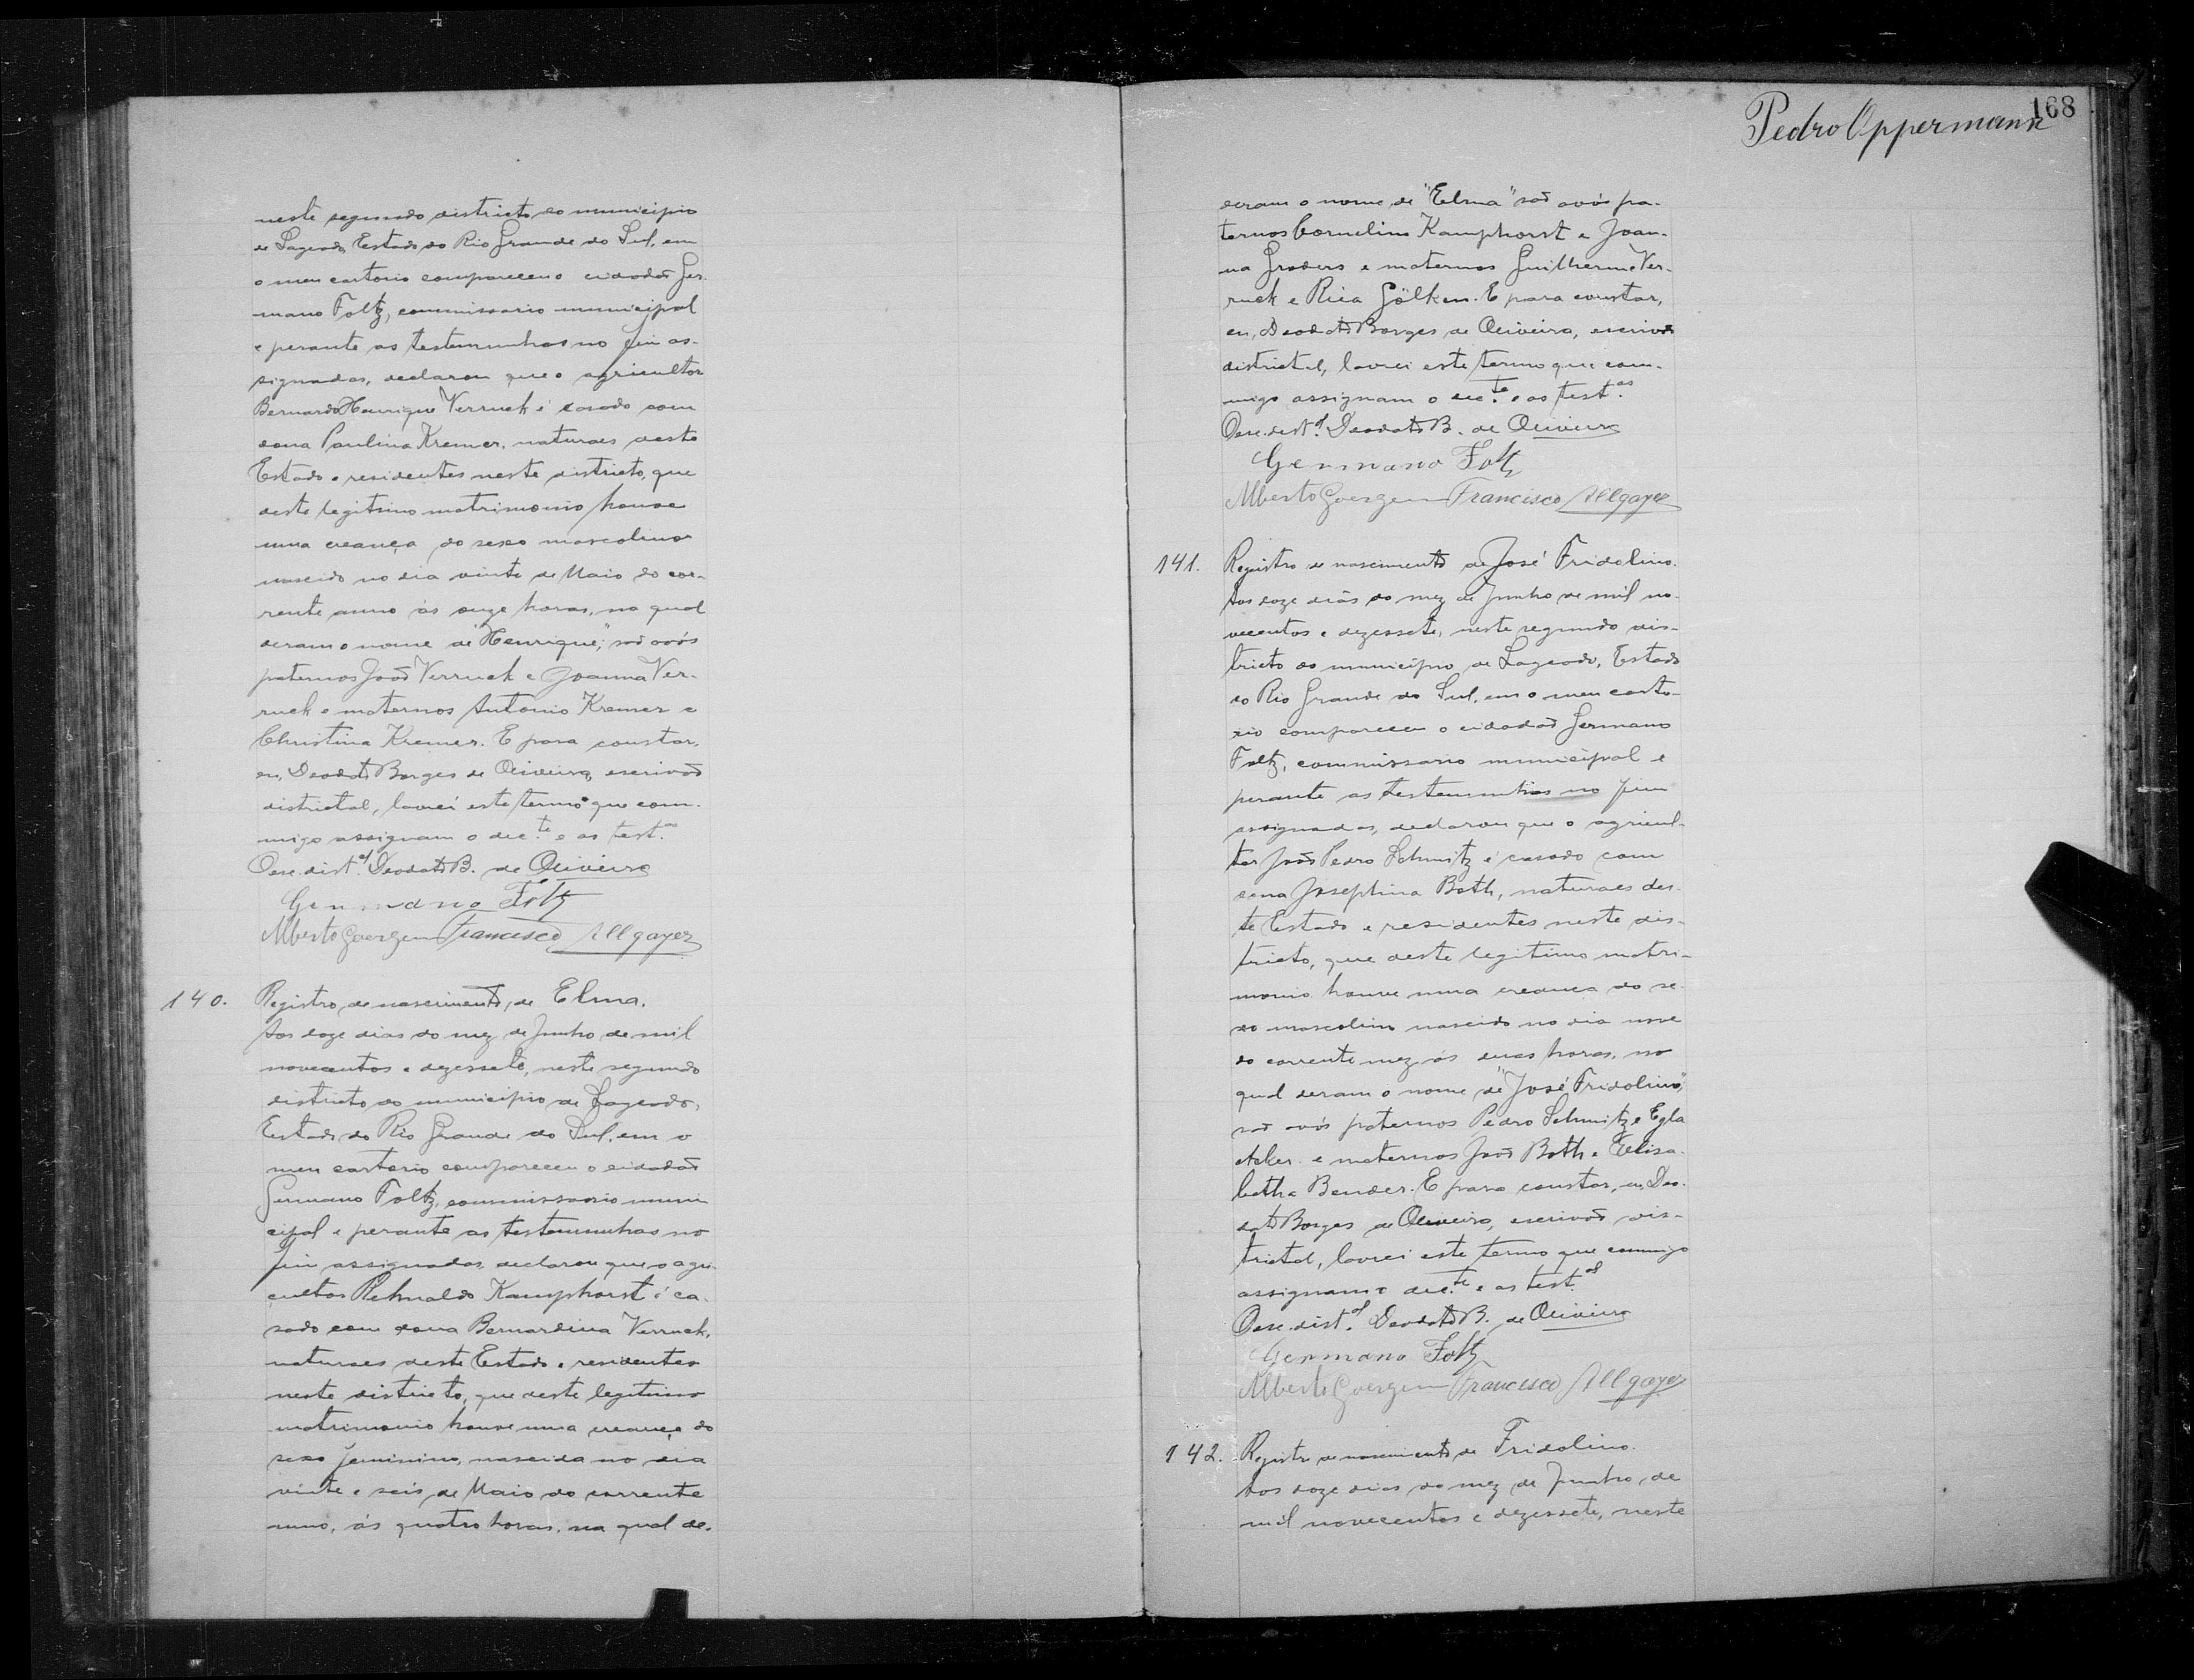 neste segundo districto do municipio
de Lageado, Estado do Rio Grande do Sul, em
o meu cartorio compareceu o cidadaõ Ger-
mano Foltz, commissario municipal
e perante as testemunhas no fim as-
signadas, declarou que o agricultor
Bernardo Henrique Verruck é casado com
dona Paulina Kremer, naturaes deste
Estado e residentes neste districto, que
deste legitimo matrimonio houve
uma creança do sexo masculino
nascido no dia vinte de Maio do cor-
rente anno ás onze horas, na qual
deram o nome de "Henrique", saõ avós
paternos Joaõ Verruck e Joanna Ver-
ruck e maternos Antonio Kremer e
Christina Kremer. E para constar,
eu, Deodato Borges de Oliveira, escrivaõ
districtal, lavrei este termo que com-
migo assignam o dec.te e as test.as
O esc. dist.al Deodato B. de Oliveira
Germano Foltz
Alberto Goergen Francisco Allgayer
140. Registro de nascimento, de Elma.
Aos doze dias do mez de Junho de mil
novecentos e dezessete, neste segundo
districto do municipio de Lageado,
Estado do Rio Grande do Sul, em o
meu cartorio compareceu o cidadaõ
Germano Foltz, commissario muni-
cipal e perante as testemunhas no
fim assignadas, declarou que o agri-
cultor Rehnaldo Kamphorst é ca-
sado com dona Bernardina Verruck,
naturaes deste Estado e residentes
neste districto, que deste legitimo
matrimonio houve uma creança do
sexo feminino, nascida no dia
vinte e seis de Maio do corrente
anno, ás quatro horas, na qual de-
Pedro Oppermann
168
deram o nome de "Elma" saõ avós pa-
ternos Cornelino Kamphorst e Joan-
na Groders e maternos Guilherme Ver-
ruck e Rica Gölken. E para constar,
eu, Deodato Borges de Oliveira, escrivaõ
districtal, lavrei este termo que com-
migo assignam o dec.te e as test.as
O esc. dist.al Deodato B. de Oliveira
Germano Foltz
Alberto Goergen Francisco Allgayer
141. Registro de nascimento de José Fridolino.
Aos doze dias do mez de Junho de mil no-
vecentos e dezessete, neste segundo dis-
tricto do municipio de Lageado, Estado
do Rio Grande do Sul, em o meu carto-
rio compareceu o cidadaõ Germano
Foltz, commissario municipal e
perante as testemunhas no fim
assignadas, declarou que o agricul-
tor Joaõ Pedro Schmitz é casado com
dona Josephina Both, naturaes des-
te Estado e residentes neste dis-
tricto, que deste legitimo matri-
monio houve uma creança do se-
xo masculino nascido no dia nove
do corrente mez ás duas horas, no
qual deram o nome de "José Fridolino",
saõ avós paternos Pedro Schmitz e Egla
Acker e maternos Joaõ Both e Elisa-
betha Bender. E para constar, eu, Deo-
dato Borges de Oliveira, escrivaõ dis-
trictal, lavrei este termo que commigo
assignam o dec.te e as test.as
O esc. dist.al Deodato B. de Oliveira
Germano Foltz
Alberto Goergen Francisco Allgayer
142. Registro de nascimento de Fridolino.
Aos doze dias do mez de Junho de
mil novecentos e dezessete, neste